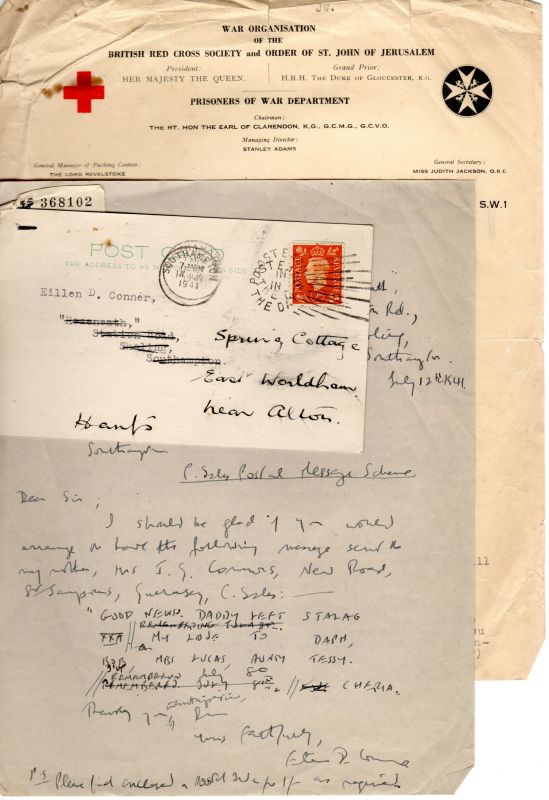 WAR ORGANISATION
OF THE
BRITISH RED CROSS SOCIETY and ORDER OF ST. JOHN OF JERUSALEM
President:
HER MAJESTY THE QUEEN.
Grand Prior:
H.R.H. THE DUKE OF GLOUCESTER, K.G.
PRISONERS OF WAR DEPARTMENT
Chairman:
THE RT. HON THE EARL OF CLARENDON, K.G., G.C.M.G., G.C.V.O.
Managing Director:
STANLEY ADAMS
General Manager of Packing Centres:
THE LORD REVELSTOKE
General Secretary:
MISS JUDITH JACKSON, O.B.E.
S.W.1
368102
POST CARD
THE ADDRESS TO BE
SIDE
SOUTHAMPTON
1941
POST EARLY
IN
THE
POSTAGE
REVENUE
Eillen D. Conner,
"Roseneath,"
Station Road,
Sholing,
Southampton.
Spring Cottage
East Worldham
near Alton.
Hants
Rd.,
Southampton.
July 12th 1941
Southampton
C. Isles Postal Message Scheme
Dear Sir,
I should be glad if you would
arrange to have the following message sent to
my mother, Mrs J. G. Connors, New Road,
St Sampsons, Guernsey, C. Isles: —
"GOOD NEWS. DADDY LEFT STALAG
MY LOVE TO DAPH,
MISS LUCAS, AUNTY TESSY.
REMEMBERED July
REMEMBERED July
CHERIA.
Thanking you,
Yours faithfully,
PS Please find enclosed a
for 1/- as required
ll